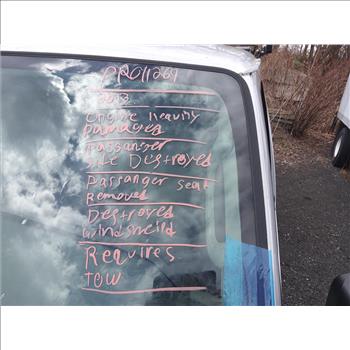 PRO11204
2013
engine heavily
Damaged
Passanger
side Destroyed
Passanger seat
Removed
Destroyed
windsheild
Requires
TOW